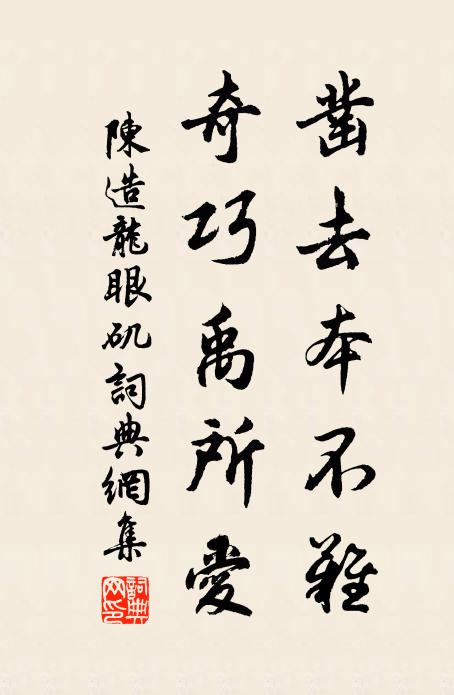 凿去本不難
奇巧禹所愛
陳造龍眼矶詞典網集
詞典網印